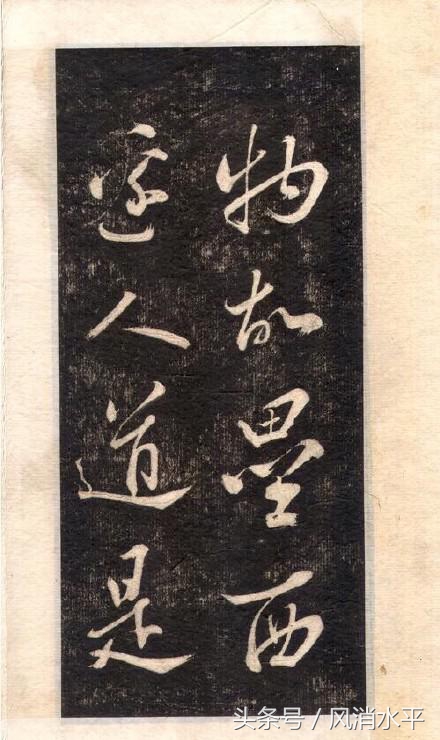 物故壘西
邊人道是
头条号 / 风消水平